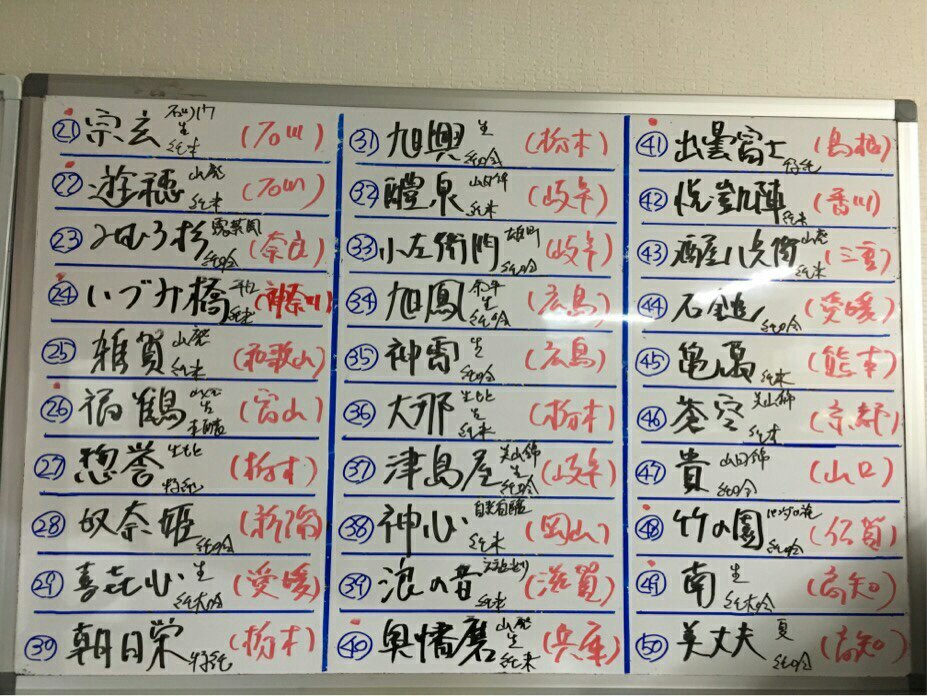 ㉑ 宗玄 石川門 生 純米 (石川)
㉒ 遊穂 山廃 純米 (石川)
㉓ みむろ杉 露葉風 純吟 (奈良)
㉔ いづみ橋 純米 (神奈川)
㉕ 雑賀 山廃 純米 (和歌山)
㉖ 福鶴 生 (富山)
㉗ 惣誉 生もと 特純 (栃木)
㉘ 奴奈姫 純吟 (新潟)
㉙ 喜七心 生 純米吟 (愛媛)
㉚ 朝日栄 特純 (栃木)
㉛ 旭興 生 純吟 (栃木)
㉜ 醴泉 山田錦 純米 (岐阜)
㉝ 小左衛門 雄町 純吟 (岐阜)
㉞ 旭鳳 生 純吟 (広島)
㉟ 神雷 生 純吟 (広島)
㊱ 大那 生もと 生 純米 (栃木)
㊲ 津島屋 美山錦 生 純吟 (岐阜)
㊳ 神心 純米 (岡山)
㊴ 浪の音 純米 (滋賀)
㊵ 奥播磨 山廃 生 純米 (兵庫)
㊶ 出雲富士 特純 (島根)
㊷ 悦凱陣 純米 (香川)
㊸ 酒屋八兵衛 山廃 純米 (三重)
㊹ 石鎚 純吟 (愛媛)
㊺ 亀萬 純米 (熊本)
㊻ 蒼空 美山錦 純米 (京都)
㊼ 貴 山田錦 純吟 (山口)
㊽ 竹の園 純吟 (佐賀)
㊾ 南 生 純米吟 (高知)
㊿ 美丈夫 夏 純吟 (高知)